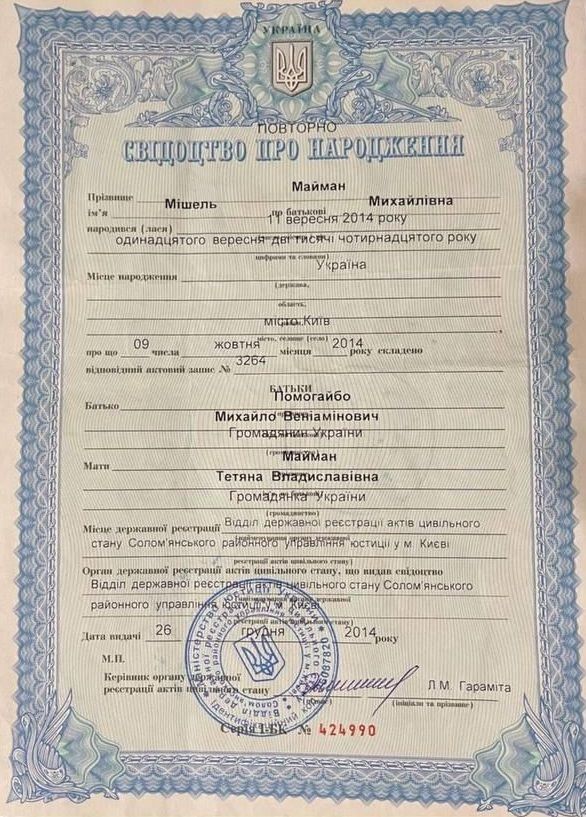 УКРАЇНА
ПОВТОРНО
СВІДОЦТВО ПРО НАРОДЖЕННЯ
Прізвище Майман
ім'я Мішель по батькові Михайлівна
народився (лася) 11 вересня 2014 року
одинадцятого вересня дві тисячі чотирнадцятого року
цифрами та словами
Місце народження Україна
(держава,
область,
місто Київ
місто, селище (село)
про що 09 числа жовтня місяця 2014 року складено
відповідний актовий запис № 3264
БАТЬКИ
Батько Помогайбо
Михайло Веніамінович
Громадянин України
Мати Майман
Тетяна Владиславівна
Громадянка України
(громадянство)
Місце державної реєстрації Відділ державної реєстрації актів цивільного
стану Солом'янського районного управління юстиції у м. Києві
реєстрації актів цивільного стану)
Орган державної реєстрації актів цивільного стану, що видав свідоцтво
Відділ державної реєстрації актів цивільного стану Солом'янського
районного управління юстиції у м. Києві
реєстрації актів цивільного стану)
Дата видачі 26 грудня 2014 року
М.П.
Керівник органу державної
реєстрації актів цивільного стану Л.М. Гараміта
(ініціали та прізвище)
Серія І-БК № 424990